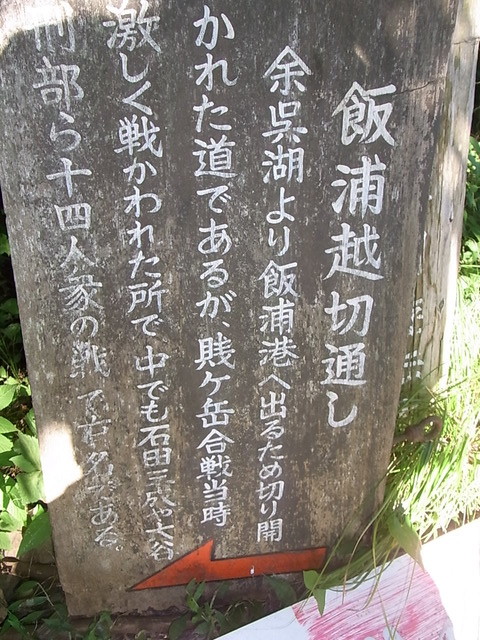 飯浦越切通し
余呉湖より飯浦港へ出るため切り開
かれた道であるが、賤ケ岳合戦当時
激しく戦かわれた所で中でも石田三成や大谷
刑部ら十四人衆の戦で有名である。